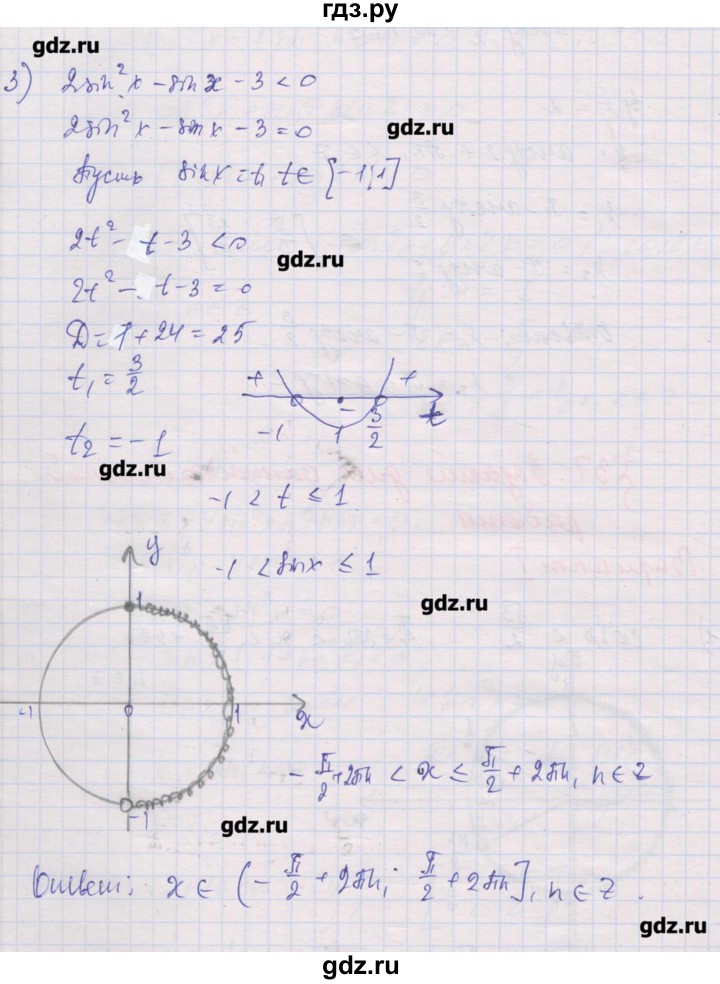 гдз.ру
gdz.ru
3) 2sin²x - sinx - 3 < 0
2sin²x - sinx - 3 = 0
gdz.ru
Пусть sinx = t, t ∈ [-1;1]
2t² - t - 3 < 0
gdz.ru
2t² - t - 3 = 0
D = 1 + 24 = 25
t₁ = 3/2
+ - +
-1 1 3/2 t
t₂ = -1
gdz.ru
-1 < t ≤ 1
-1 < sinx ≤ 1
y
gdz.ru
1
-1 0 1 x
-π/2 + 2πn < x ≤ π/2 + 2πn, n ∈ Z
-1
gdz.ru
Ответ: x ∈ (-π/2 + 2πn; π/2 + 2πn], n ∈ Z.
gdz.ru
gdz.ru